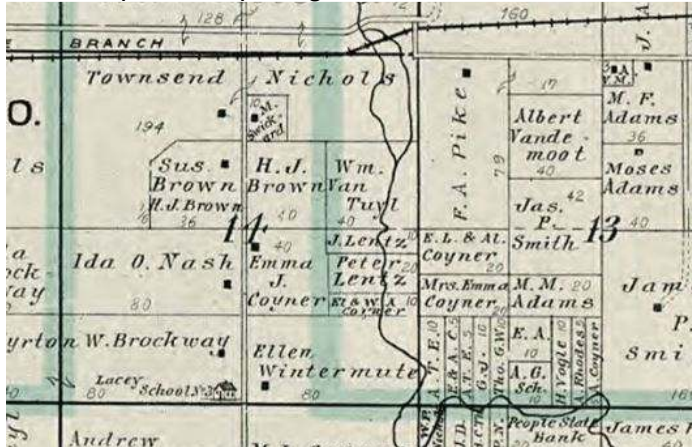 128
160
BRANCH
Townsend Nichols
O.
194
10
M.
Swickard
F.A. Pike
79
17
Albert
Vande-
moot
40
M. F.
Adams
36
Moses
Adams
40
ls
Sus.
Brown
H.J. Brown
36
H.J.
Brown
40
Wm.
Van
Tuyl
40
14
Jas. 42
P.
Smith
13
J. Lentz 10
E. L. & Al.
Coyner
20
Ida O. Nash
80
40
Emma
J.
Coyner
Peter 20
Lentz
Mrs. Emma
Coyner 20
M. M. 20
Adams
Jam
P.
Smi
yrton W. Brockway
Ellen
Wintermute
80
Lacey School No. 3
80
A. T. E. 10
E & A. C. 5
A. T. E. 5
G. J. 10
Tho. G. W. 10
E. A.
10
A. G.
Sch.
H. Vogle 10
A. Rhodes 5
A. Coyner
W. P.
J. D.
P. N.
People State
Bank
James
Andrew